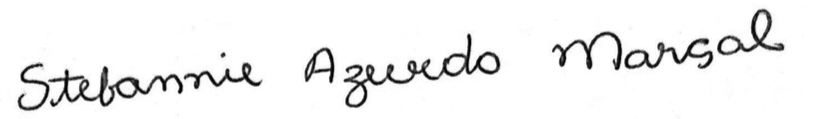 Stefannie Azevedo Marçal